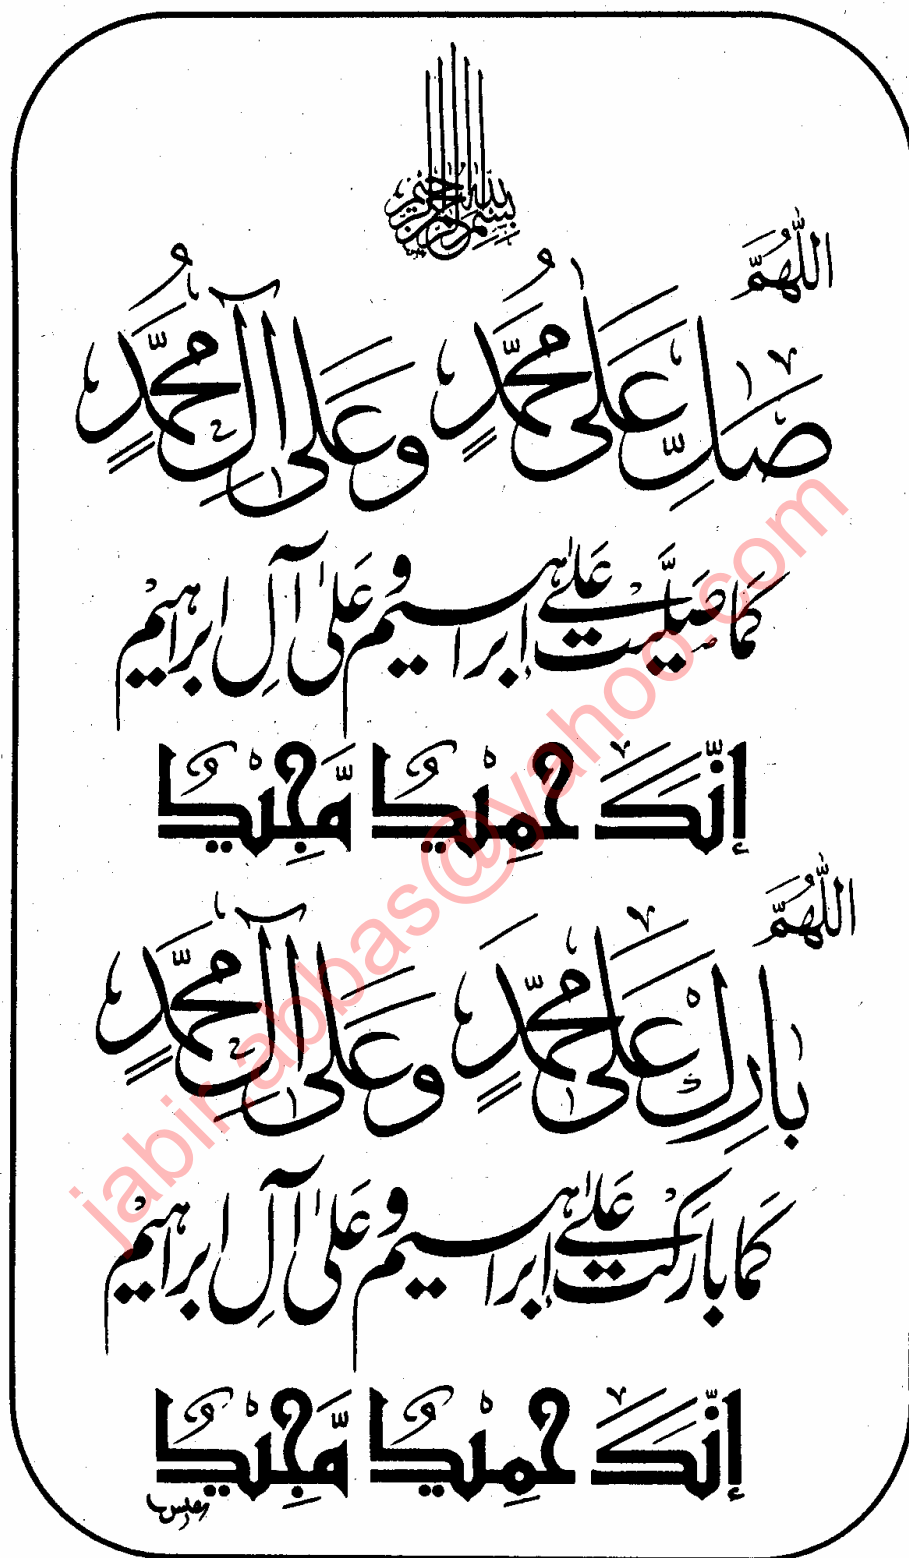 بسم الله الرحمن الرحيم
اللّٰهُمَّ
صَلِّ عَلٰى مُحَمَّدٍ وَعَلٰى آلِ مُحَمَّدٍ
كَمَا صَلَّيْتَ عَلٰى إِبْرَاهِيْمَ وَعَلٰى آلِ اِبْرَاهِيْمَ
إِنَّكَ حَمِيْدٌ مَّجِيْدٌ
اللّٰهُمَّ
بَارِكْ عَلٰى مُحَمَّدٍ وَعَلٰى آلِ مُحَمَّدٍ
كَمَا بَارَكْتَ عَلٰى إِبْرَاهِيْمَ وَعَلٰى آلِ اِبْرَاهِيْمَ
إِنَّكَ حَمِيْدٌ مَّجِيْدٌ
jabir.abbas@yahoo.com